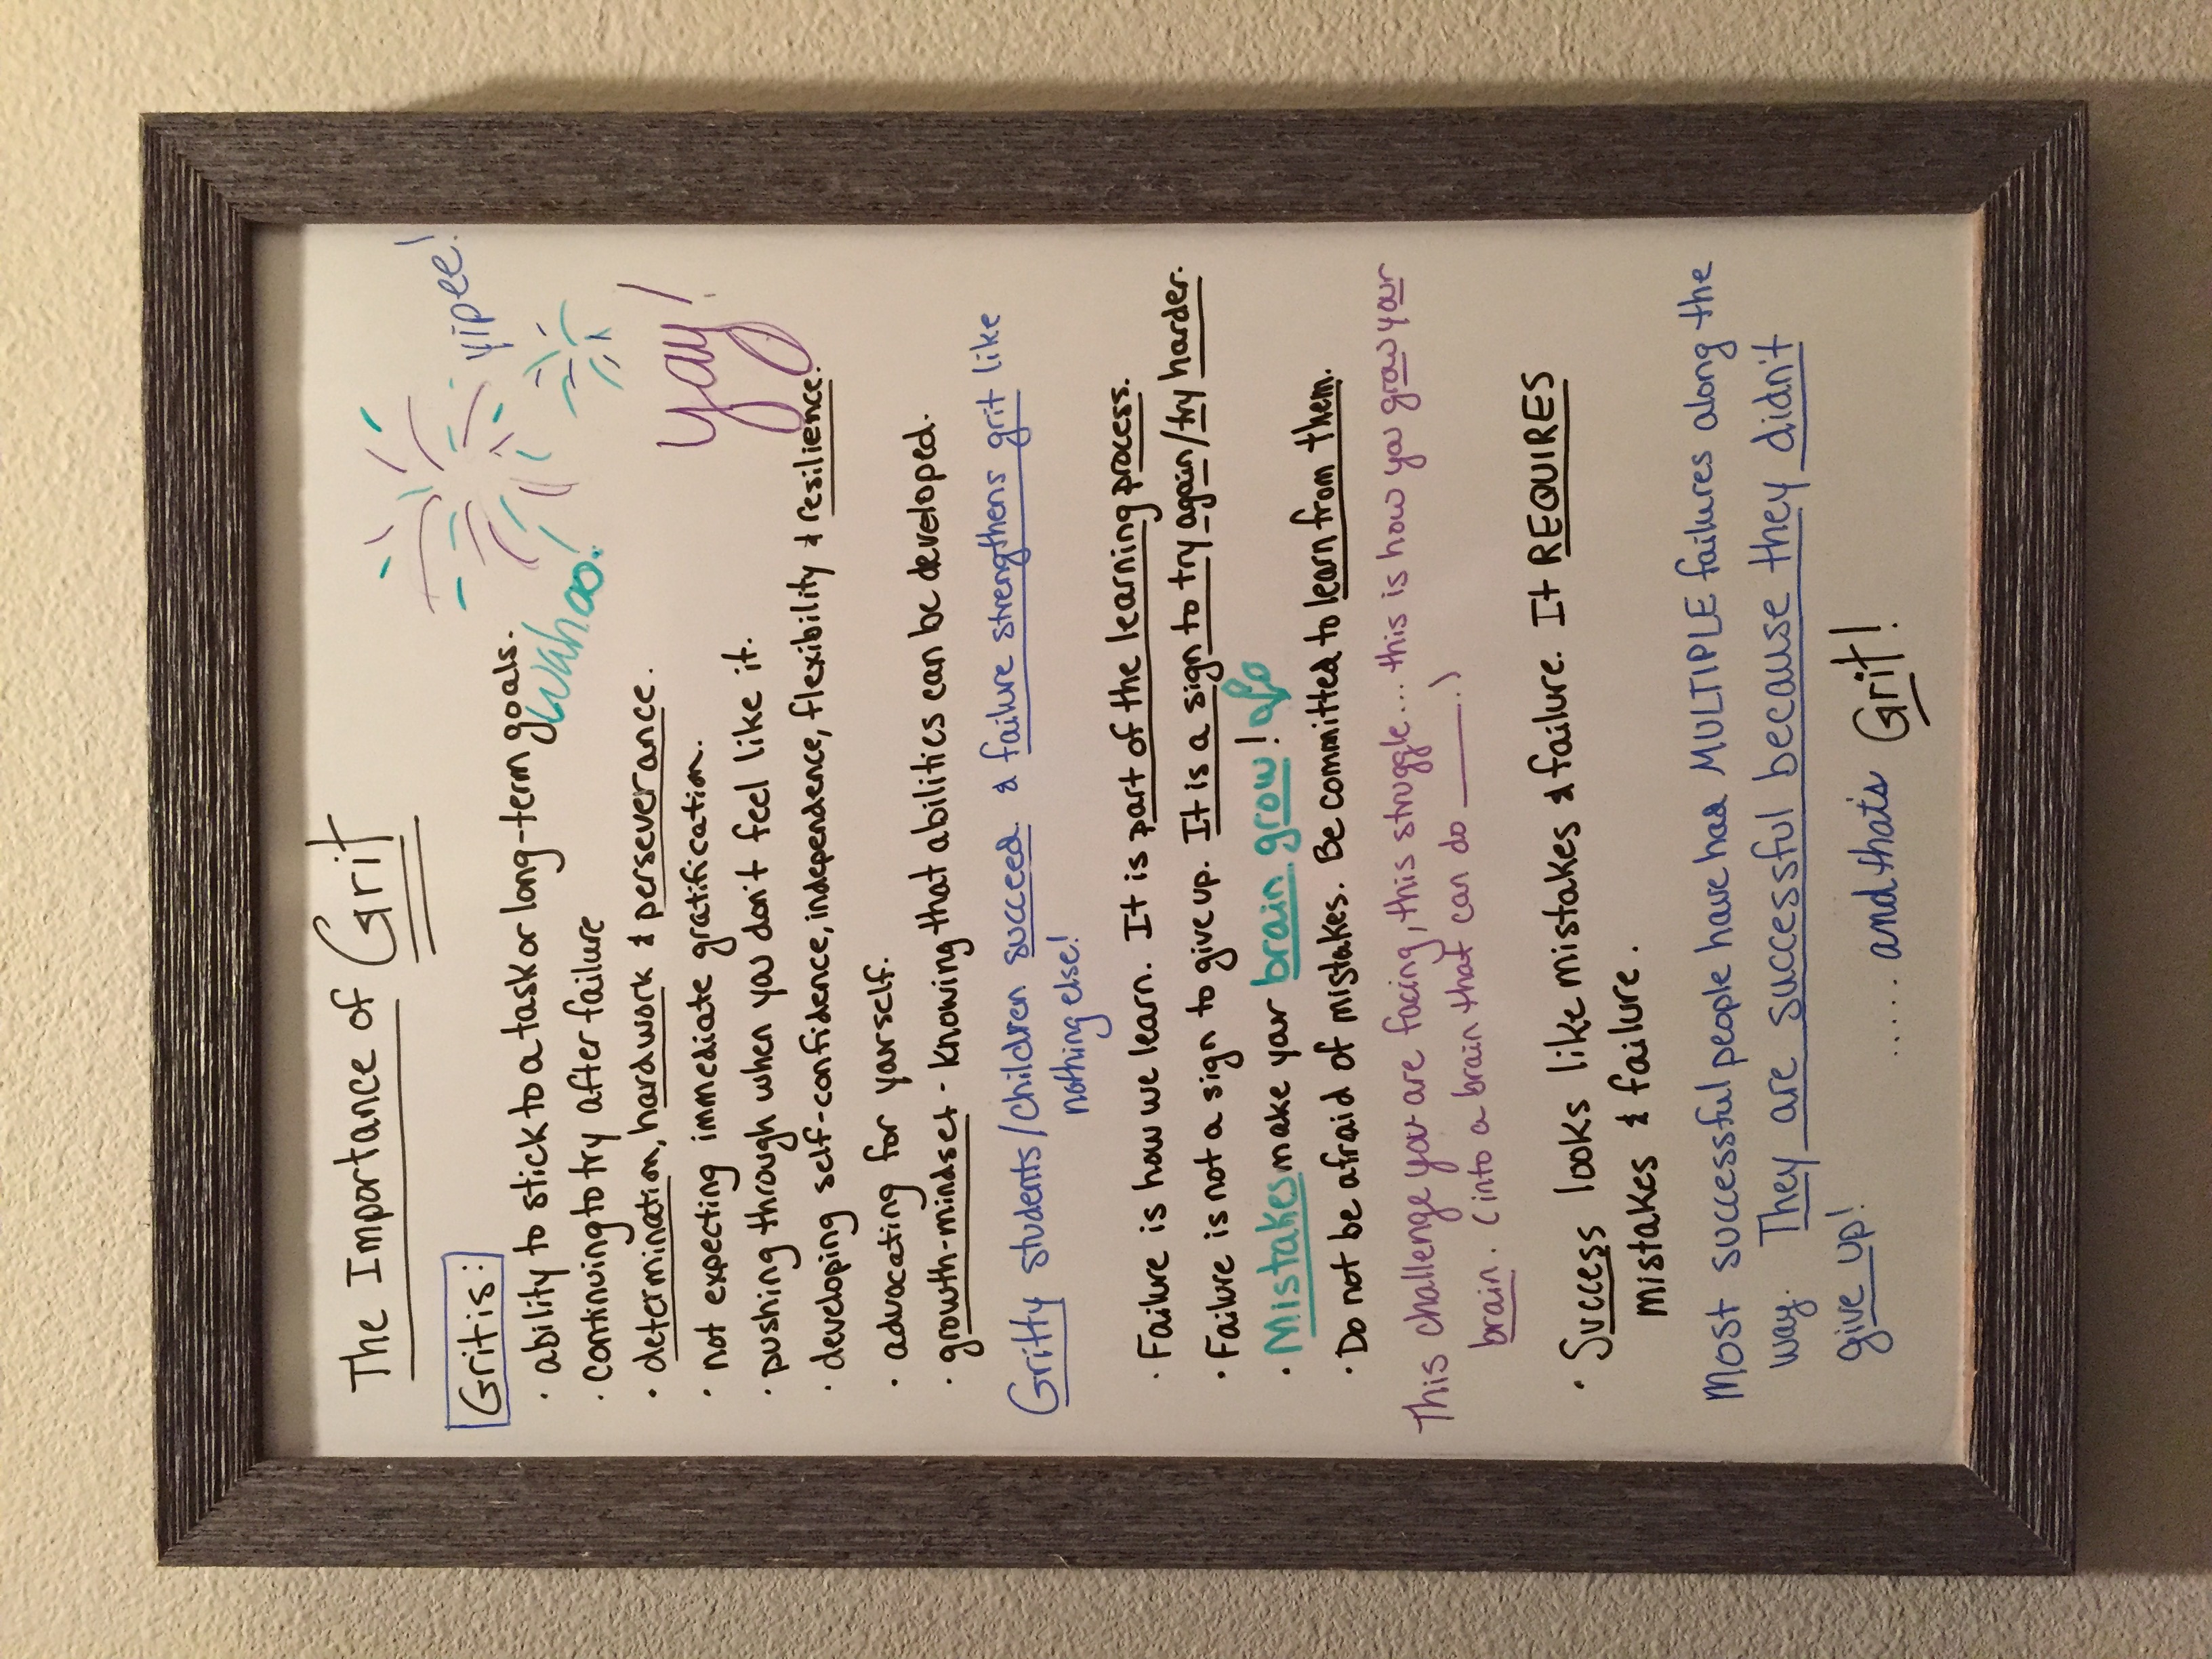 The Importance of Grit
yipee!
Wahoo!
yay!
Grit is:
· ability to stick to a task or long-term goals.
· continuing to try after failure
· determination, hardwork & perseverance.
· not expecting immediate gratification.
· pushing through when you don't feel like it.
· developing self-confidence, independence, flexibility & resilience.
· advocating for yourself.
· growth-mindset - knowing that abilities can be developed.
Gritty students/children succeed & failure strengthens grit like
nothing else!
· Failure is how we learn. It is part of the learning process.
· Failure is not a sign to give up. It is a sign to try again/try harder.
· Mistakes make your brain grow!
· Do not be afraid of mistakes. Be committed to learn from them.
This challenge you are facing, this struggle... this is how you grow your
brain. (into a brain that can do ____.)
· Success looks like mistakes & failure. It REQUIRES
mistakes & failure.
Most successful people have had MULTIPLE failures along the
way. They are successful because they didn't
give up!
..... and that's Grit!